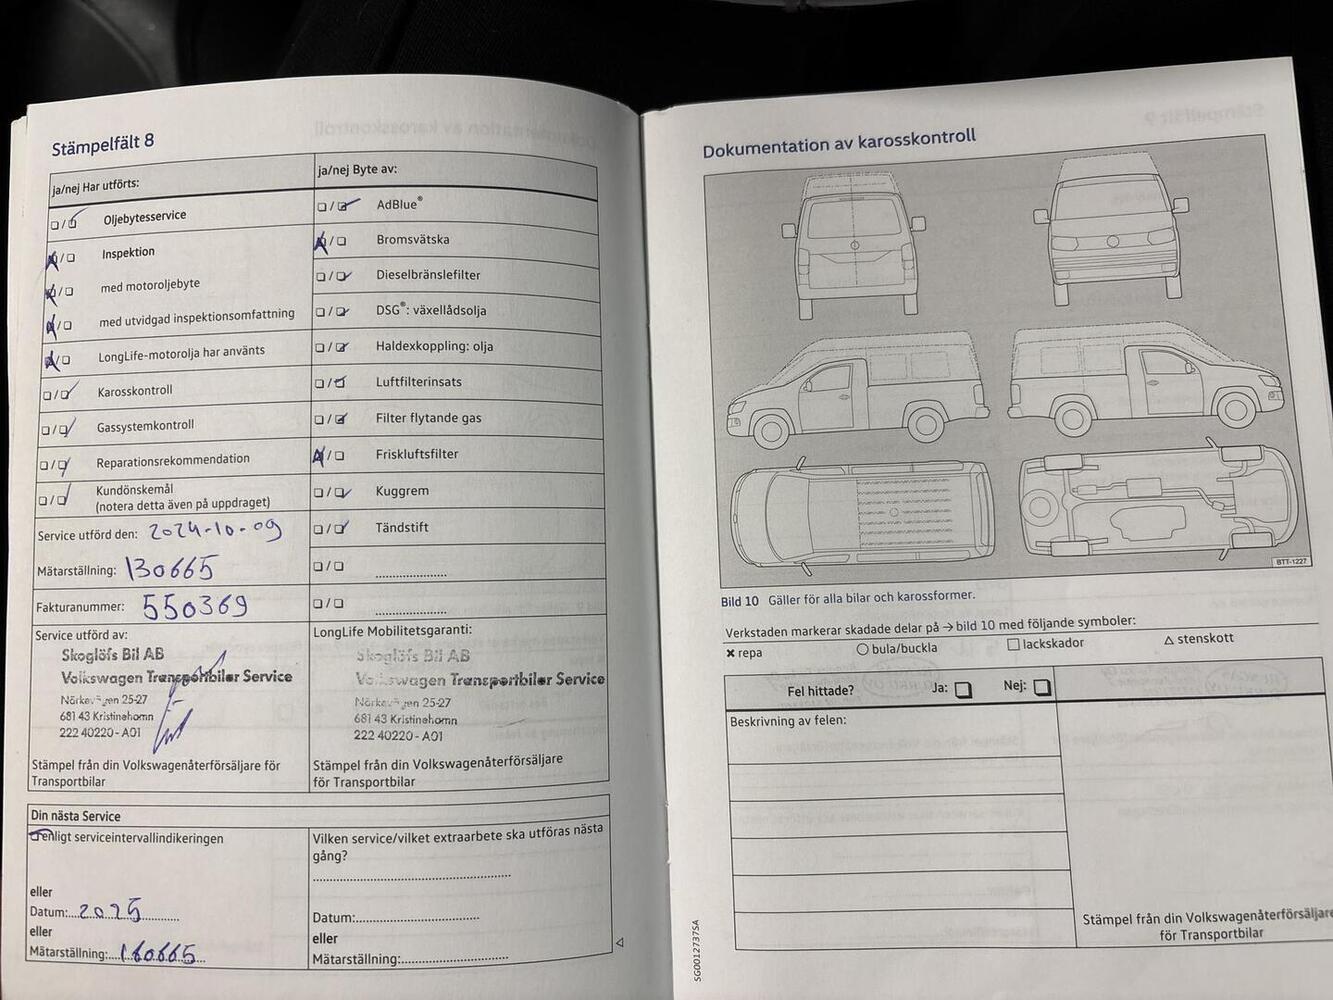 Stämpelfält 8
ja/nej Har utförts:
Oljebytesservice
Inspektion
med motoroljebyte
med utvidgad inspektionsomfattning
LongLife-motorolja har använts
Karosskontroll
Gassystemkontroll
Reparationsrekommendation
Kundönskemål
(notera detta även på uppdraget)
Service utförd den: 2024-10-09
Mätarställning: 130665
Fakturanummer: 550369
Service utförd av:
Skoglöfs Bil AB
Volkswagen Transportbilar Service
25-27
681 43 Kristinehamn
222 40220 - A01
Stämpel från din Volkswagenåterförsäljare för
Transportbilar
ja/nej Byte av:
AdBlue®
Bromsvätska
Dieselbränslefilter
DSG®: växellådsolja
Haldexkoppling: olja
Luftfilterinsats
Filter flytande gas
Friskluftsfilter
Kuggrem
Tändstift
LongLife Mobilitetsgaranti:
Skoglöfs Bil AB
Volkswagen Transportbilar Service
25-27
681 43 Kristinehamn
222 40220 - A01
Stämpel från din Volkswagenåterförsäljare
för Transportbilar
Din nästa Service
enligt serviceintervallindikeringen
eller
Datum: 2025
eller
Mätarställning: 160665
Vilken service/vilket extraarbete ska utföras nästa
gång?
Datum:
eller
Mätarställning:
Dokumentation av karosskontroll
BTT-1227
Bild 10 Gäller för alla bilar och karossformer.
Verkstaden markerar skadade delar på → bild 10 med följande symboler:
✖ repa ○ bula/buckla □ lackskador △ stenskott
Fel hittade? Ja: Nej:
Beskrivning av felen:
Stämpel från din Volkswagenåterförsäljare
för Transportbilar
SG0012737SA